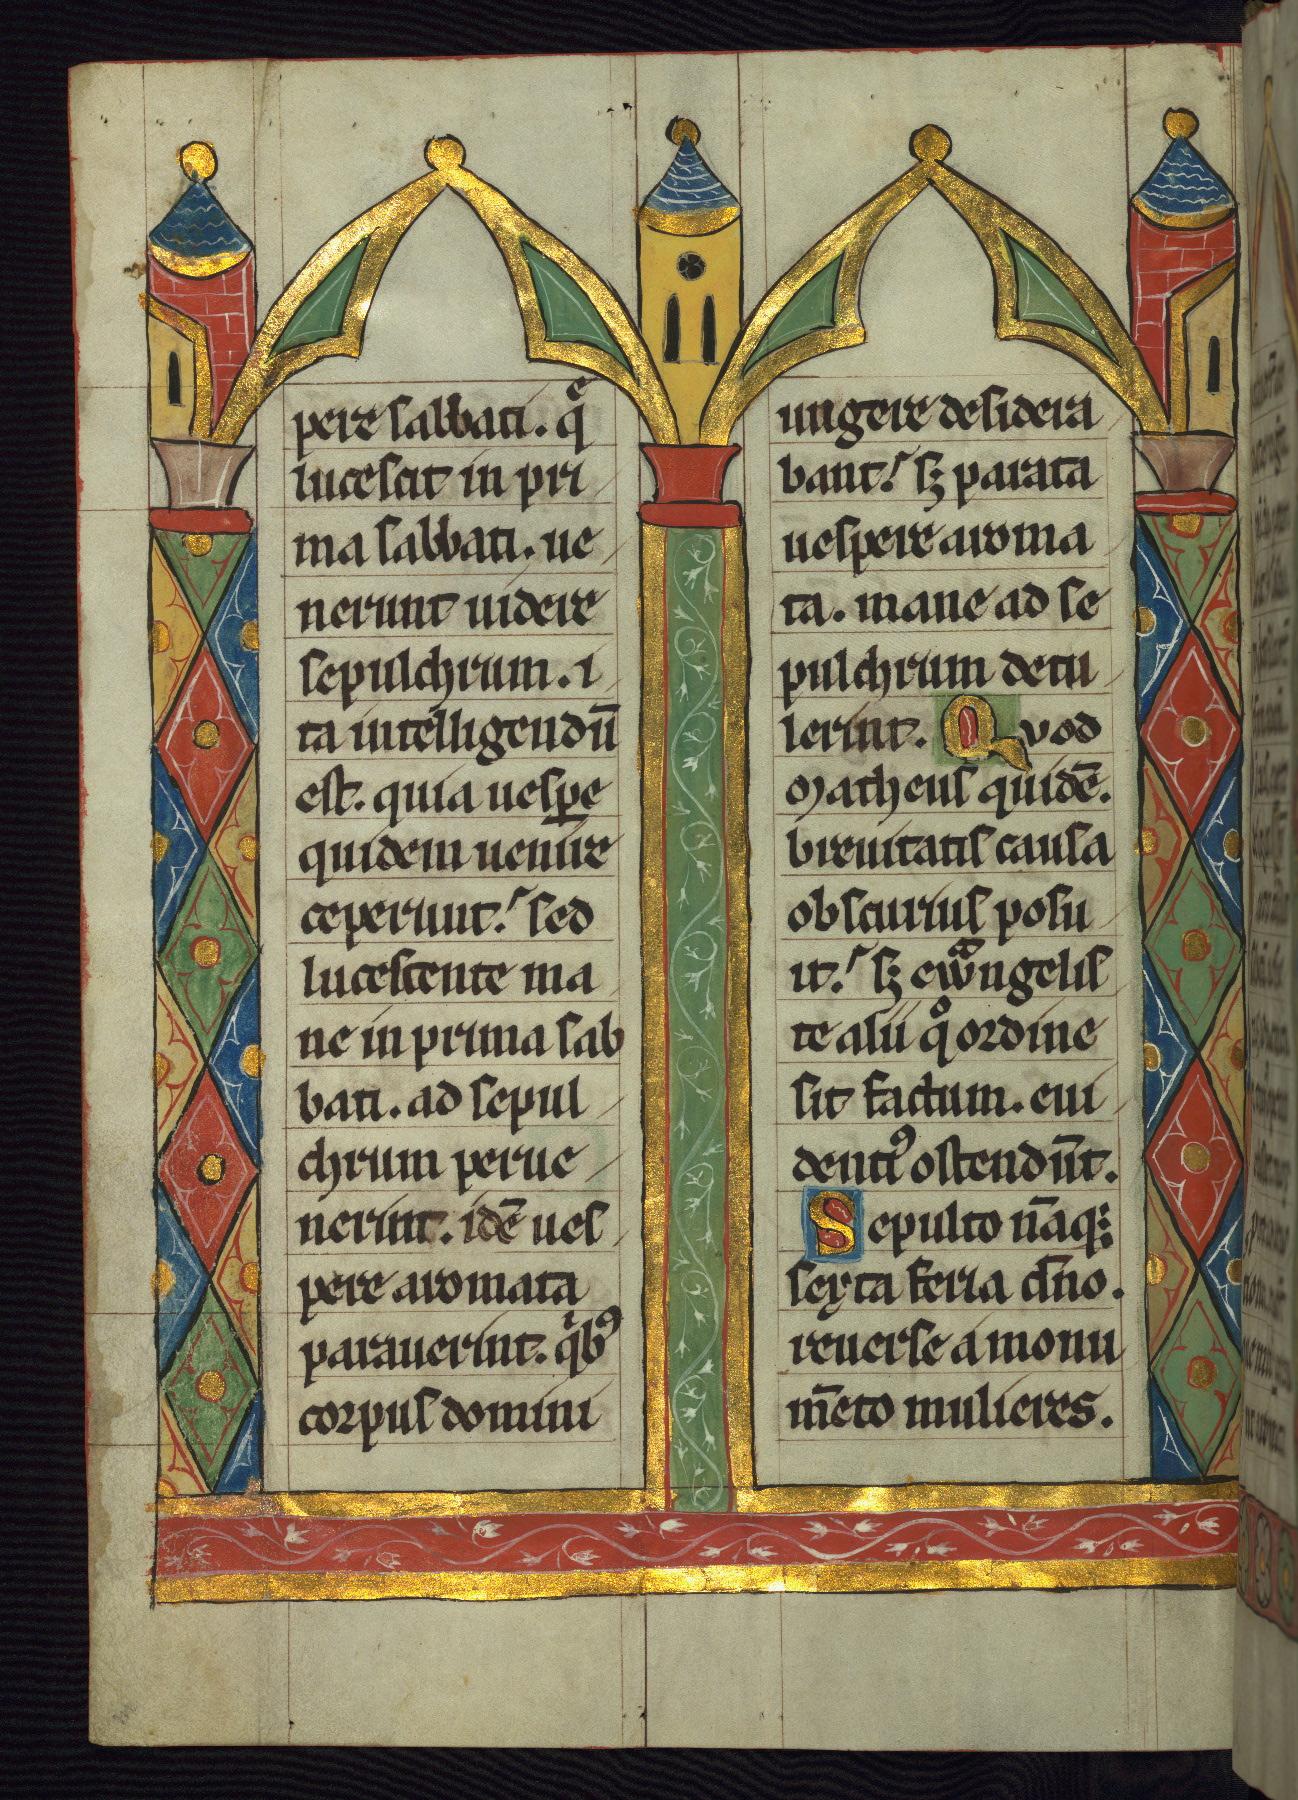 pere sabbati. q̄
lucescit in pri
ma sabbati. ue
nerunt uidere
sepulchrum. i
ta intelligendū
est. quia uesꝑe
quidem uenire
ceperunt. sed
lucescente ma
ne in prima sab
bati. ad sepul
chrum perue
nerint. idē ues
pere aromata
parauerint. qͥbꝰ
corpus domini
ungere desidera
bant. sꝫ parata
uespere aroma
ta. mane ad se
pulchrum detu
lerint. Quod
Matheus quidē.
breuitatis causa
obscurius posu
it. sꝫ ewͣngelis
te alii qͦ ordine
sit factum. eui
dentiꝰ ostendūt.
Sepulto nāqꝫ
sexta feria dn̄o.
reuerse a monu
m̄eto mulieres.